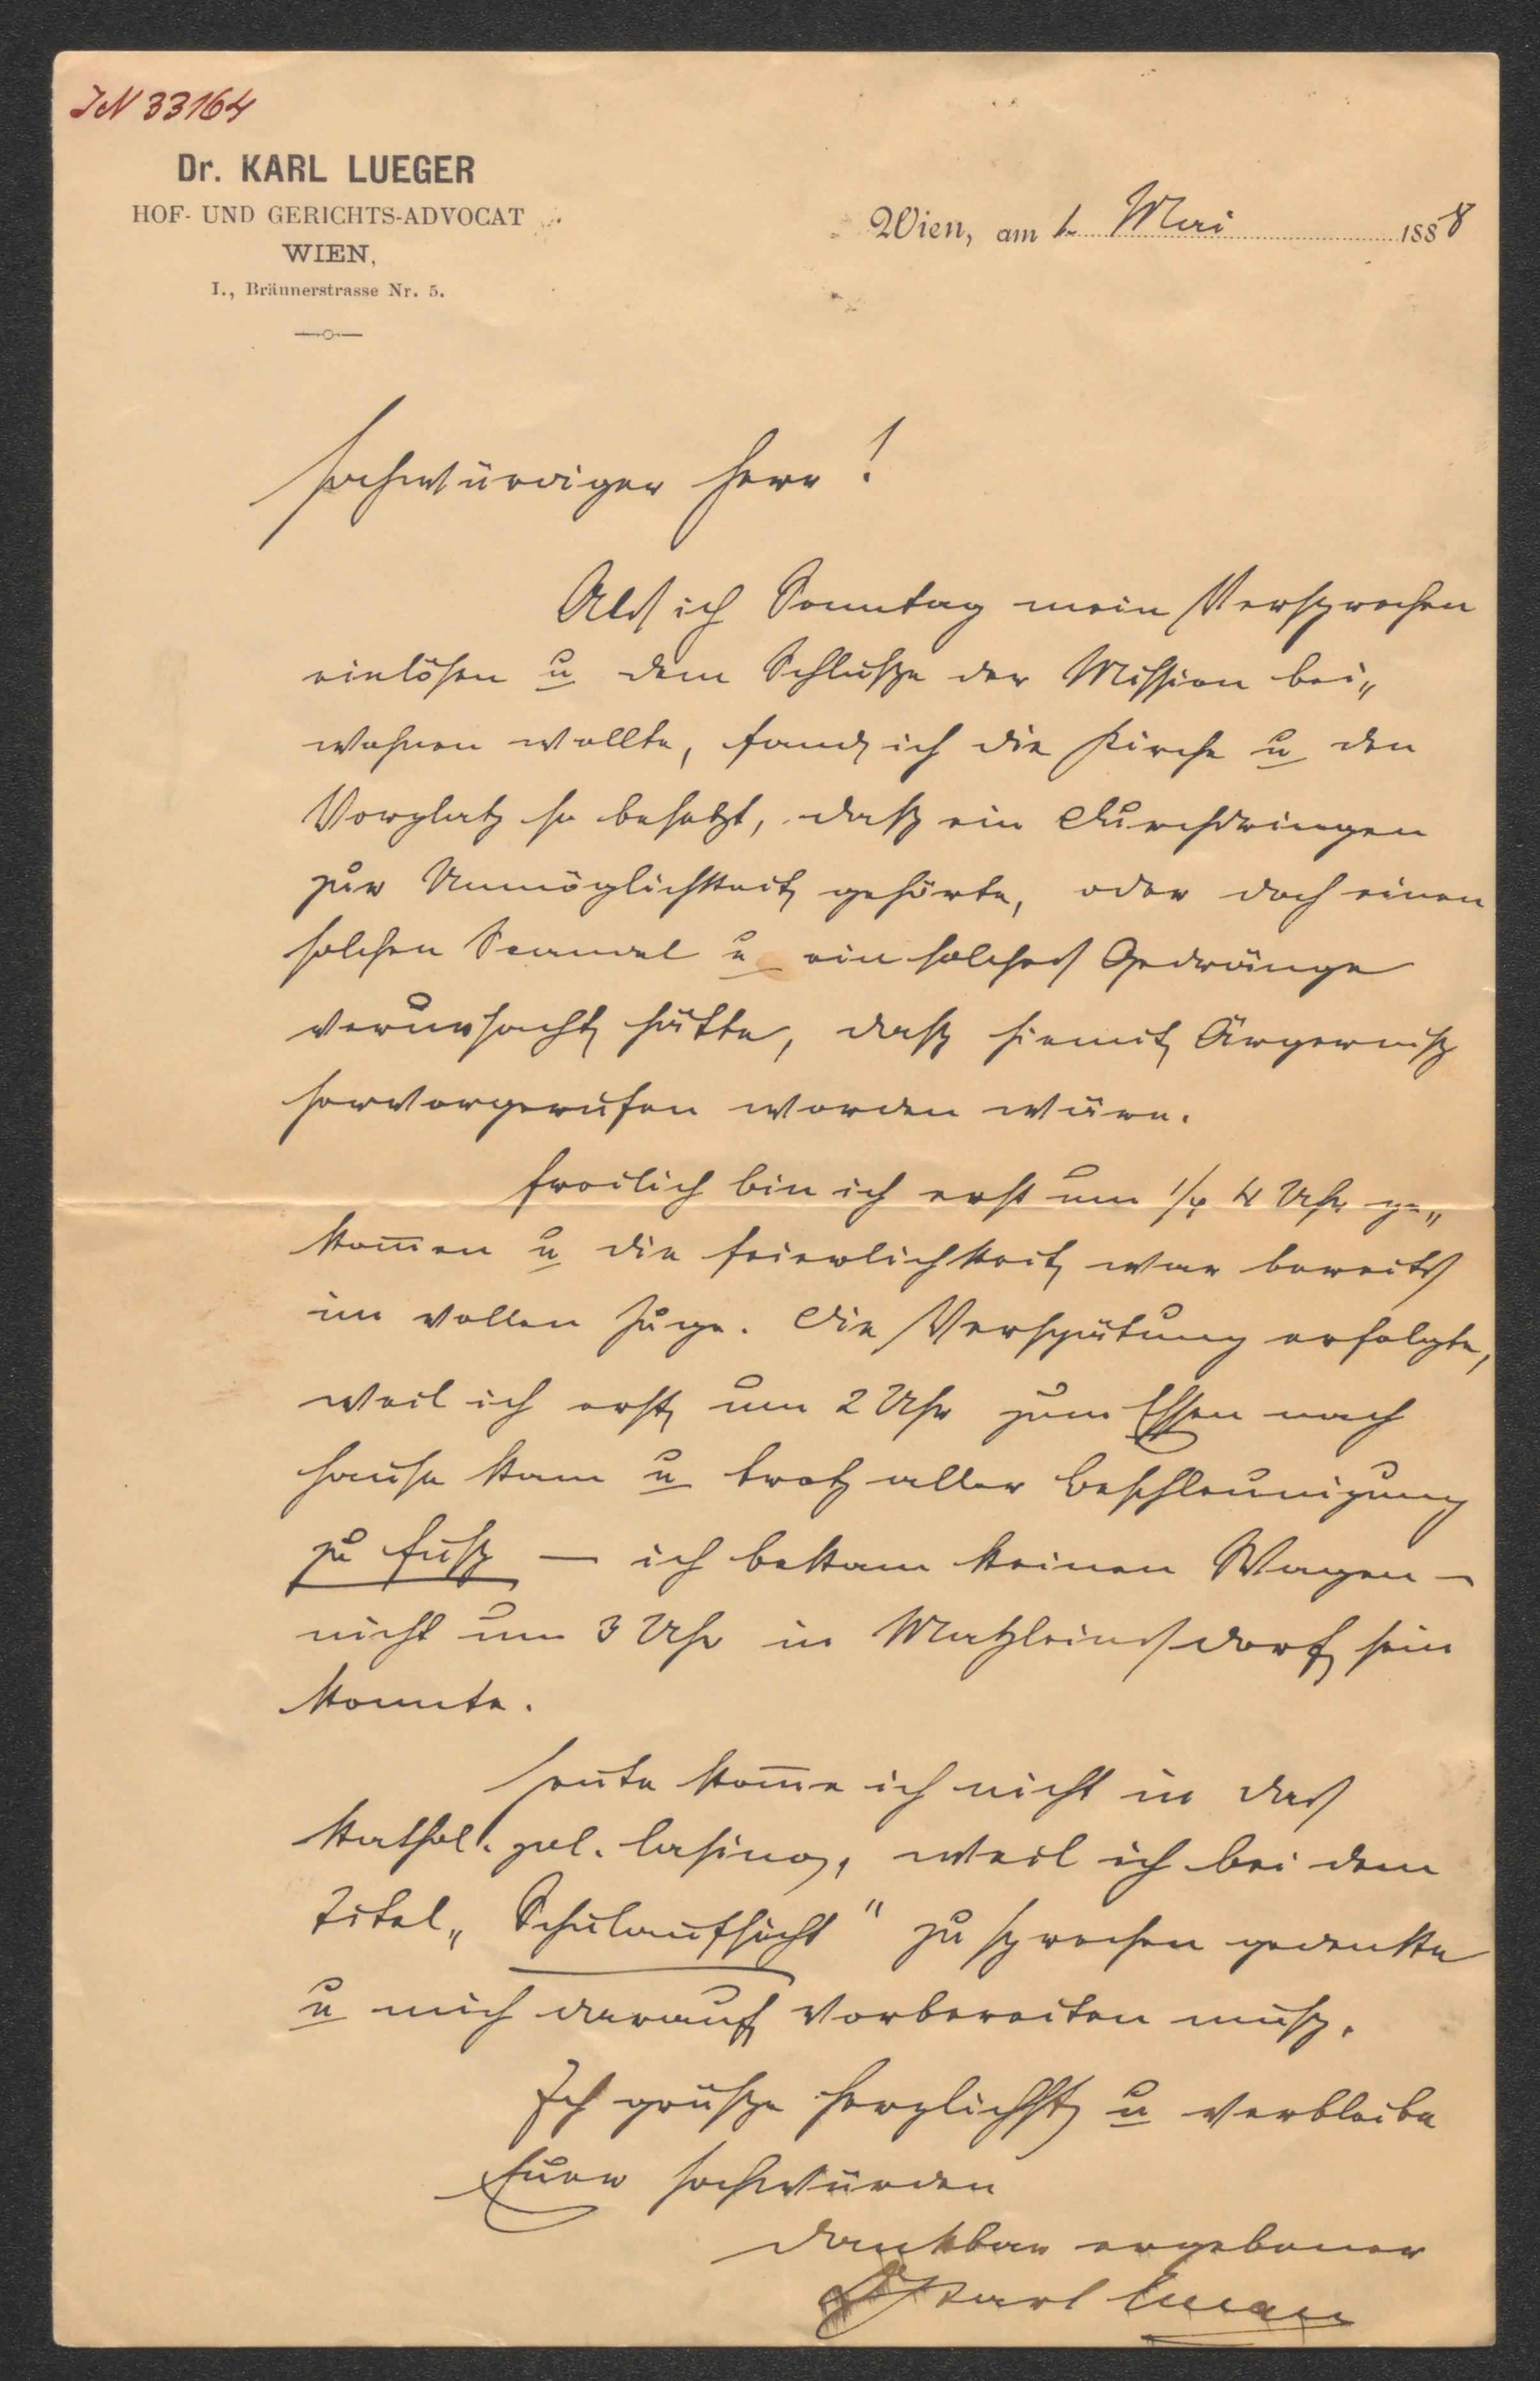 IN 33164
Dr. KARL LUEGER
HOF- UND GERICHTS-ADVOCAT
WIEN,
I., Bräunerstrasse Nr. 5.
Wien, am 1. Mai 1888
Hochwürdiger Herr!
Als ich Sonntag mein Versprechen
einlösen u dem Schluße der Mission bei„
wohnen wollte, fand ich die Kirche u den
Vorplatz so besetzt, daß ein Durchdringen
zur Unmöglichkeit gehörte, oder doch einen
solchen Scandal u ein solches Gedränge
verursacht hätte, daß hiemit Ärgerniß
hervorgerufen worden wäre.
Freilich bin ich erst um 1/4 4 Uhr ge„
kom̅en u die Feierlichkeit war bereits
im vollen Zuge. Die Verspätung erfolgte,
weil ich erst um 2 Uhr zum Essen nach
Hause kam u trotz aller Beschleunigung
zu Fuß — ich bekam keinen Wagen —
nicht um 3 Uhr in Matzleinsdorf sein
konnte.
Heute kom̅e ich nicht in das
kathol. pol. Casino, weil ich bei dem
Titel „Schulaufsicht" zu sprechen gedenke
u mich darauf vorbereiten muß.
Ich grüße herzlichst u verbleibe
Euer Hochwürden
dankbar ergebener
Dr Karl Lueger